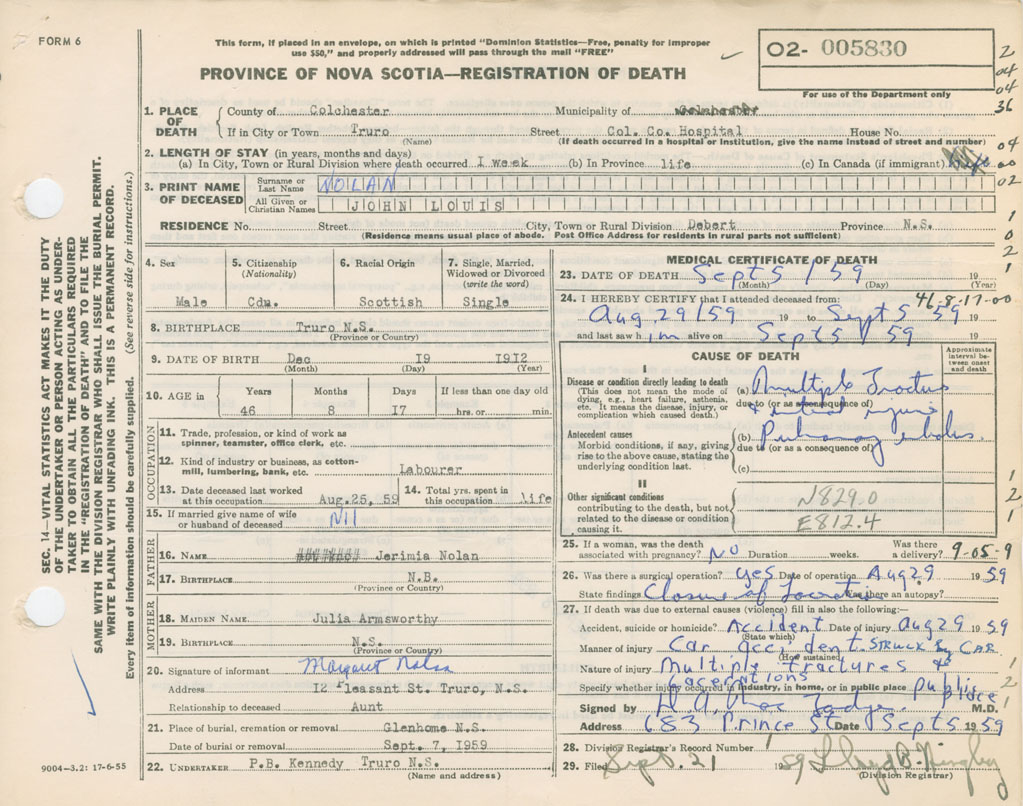 FORM 6
This form, if placed in an envelope, on which is printed "Dominion Statistics—Free, penalty for improper
use $50," and properly addressed will pass through the mail "FREE"
O2- 005830
For use of the Department only
PROVINCE OF NOVA SCOTIA—REGISTRATION OF DEATH
2
04
04
36
04
00
02
1
0
2
1
1. PLACE OF DEATH County of Colchester Municipality of Colchester
If in City or Town Truro Street Col. Co. Hospital House No.
(Name) (If death occurred in a hospital or institution, give the name instead of street and number)
2. LENGTH OF STAY (in years, months and days)
(a) In City, Town or Rural Division where death occurred I week (b) In Province life (c) In Canada (if immigrant)
3. PRINT NAME OF DECEASED
Surname or Last Name NOLAN
All Given or Christian Names JOHN LOUIS
RESIDENCE No. Street City, Town or Rural Division Debert Province N.S.
(Residence means usual place of abode. Post Office Address for residents in rural parts not sufficient)
SEC. 14—VITAL STATISTICS ACT MAKES IT THE DUTY
OF THE UNDERTAKER OR PERSON ACTING AS UNDER-
TAKER TO OBTAIN ALL THE PARTICULARS REQUIRED
IN THE "REGISTRATION OF DEATH" AND TO FILE THE
SAME WITH THE DIVISION REGISTRAR WHO SHALL ISSUE THE BURIAL PERMIT.
WRITE PLAINLY WITH UNFADING INK. THIS IS A PERMANENT RECORD.
Every item of information should be carefully supplied. (See reverse side for instructions.)
4. Sex 5. Citizenship 6. Racial Origin 7. Single, Married,
(Nationality) Widowed or Divorced
(write the word)
Male Cdn. Scottish Single
8. BIRTHPLACE Truro N.S.
(Province or Country)
9. DATE OF BIRTH Dec 19 1912
(Month) (Day) (Year)
10. AGE in Years Months Days If less than one day old
46 8 I7 hrs. or min.
OCCUPATION
11. Trade, profession, or kind of work as
spinner, teamster, office clerk, etc.
12. Kind of industry or business, as cotton-
mill, lumbering, bank, etc. Labourer
13. Date deceased last worked
at this occupation Aug.25, 59
14. Total yrs. spent in
this occupation life
15. If married give name of wife
or husband of deceased Nil
FATHER
16. NAME Jerimia Nolan
17. BIRTHPLACE N.B.
(Province or Country)
MOTHER
18. MAIDEN NAME Julia Armsworthy
19. BIRTHPLACE N.S.
(Province or Country)
20. Signature of informant Margaret Nolan
Address I2 Pleasant St. Truro, N.S.
Relationship to deceased Aunt
21. Place of burial, cremation or removal Glenhome N.S.
Date of burial or removal Sept. 7, 1959
22. UNDERTAKER P.B. Kennedy Truro N.S.
(Name and address)
9004-3.2: 17-6-55
MEDICAL CERTIFICATE OF DEATH
23. DATE OF DEATH Sept 5 / 59 19
(Month) (Day) (Year)
24. I HEREBY CERTIFY that I attended deceased from: 46-8-17-00
Aug. 29/59 19 to Sept 5 59 19
and last saw him alive on Sept 5 59 19
CAUSE OF DEATH
Approximate
interval be-
tween onset
and death
I
Disease or condition directly leading to death
(This does not mean the mode of
dying, e.g., heart failure, asthenia,
etc. It means the disease, injury, or
complication which caused death.)
(a) Multiple Fractures
due to (or as a consequence of)
Antecedent causes
Morbid conditions, if any, giving
rise to the above cause, stating the
underlying condition last.
(b) Pulmonary embolus
due to (or as a consequence of)
(c)
II
Other significant conditions
contributing to the death, but not
related to the disease or condition
causing it.
N829.0
E812.4
1
2
1
25. If a woman, was the death
associated with pregnancy? No Duration weeks. Was there
a delivery? 9-05-9
26. Was there a surgical operation? yes Date of operation Aug 29 19 59
State findings Closure of Was there an autopsy?
27. If death was due to external causes (violence) fill in also the following:—
Accident, suicide or homicide? Accident Date of injury Aug 29 19 59
(State which)
Manner of injury Car accident STRUCK BY CAR
(How sustained)
Nature of injury Multiple fractures & lacerations
Specify whether injury occurred in industry, in home, or in public place public place
2
1
Signed by H. A. M.D.
Address 683 Prince St Date Sept 5 19 59
28. Division Registrar's Record Number
29. Filed Sept. 21 19 59 Lloyd B.
(Division Registrar)